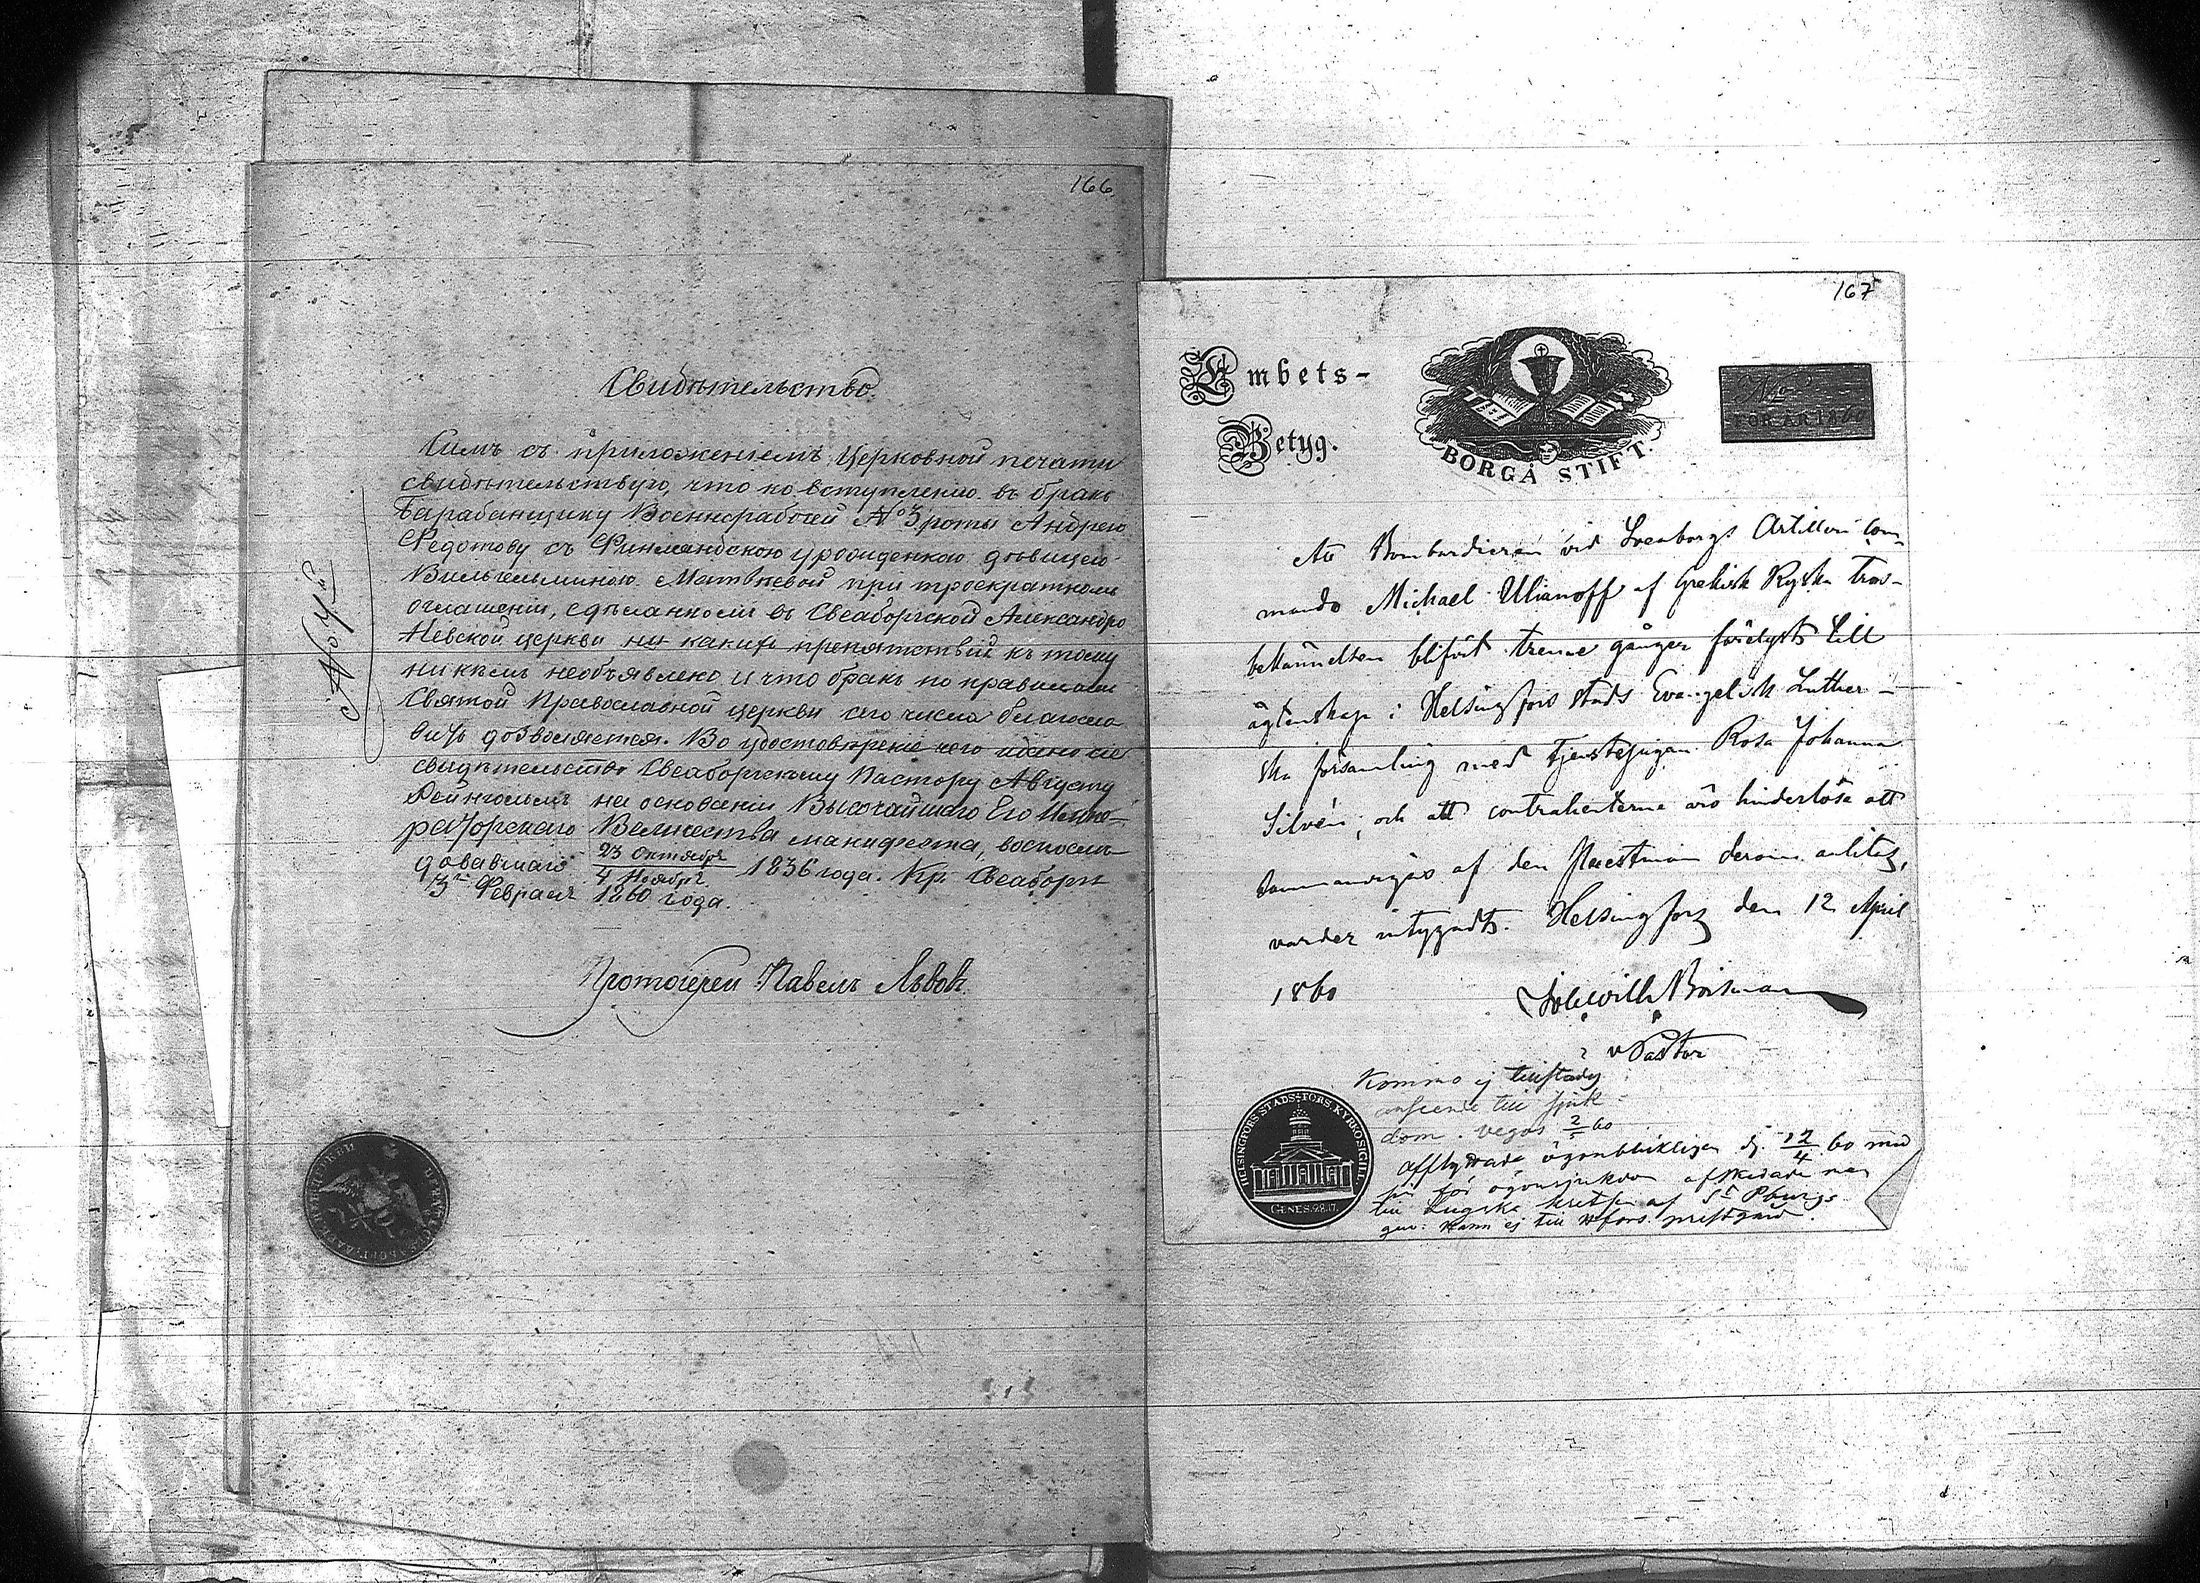 166
Свидѣтельство.
Симъ съ приложеніемъ Церковной печати
свидѣтельствую, что ко вступленію въ бракъ
Барабанщику Военнорабочей № 3 роты Андрею
Ѳедотову съ Финляндскою уроженкою дѣвицею
Вильгельминою Матвѣевой при троекратномъ
оглашеніи, сдѣланномъ въ Свеаборгской Александро
Невской церкви ни какихъ препятствій къ тому
ни кѣмъ необъявлено и что бракъ по правиламъ
Святой Православной церкви сего числа благосло
вить дозволяется. Во удостовѣреніе чего дано сіе
свидѣтельство Свеаборгскому Пастору Августу
на основаніи Высочайшаго Его Импе-
раторскаго Величества манифеста, воспослѣ-
довавшаго 23 Октября / 4 Ноября 1836 года. Кр. Свеаборгъ
3го Февраля 1860 года.
Протоіерей Павелъ Львовъ
№ 4.
167
Embets-
Betyg.
BORGÅ STIFT.
FÖR ÅR 1860
Att Bombardieren vid Sveaborgs Artilleri Com-
mando Michael Ulianoff af Grekisk Ryska tros-
bekännelsen blifvit trenne gånger förelyst till
ägtenskap i Helsingfors stads Evangelisk Luther-
ska församling med tjenstepigan Rosa Johanna
Silvén, och att contrahenterne äro hinderlösa att
sammanvigas af den Prestman derom anlitas,
varder intygadt. Helsingfors den 12 April
1860
v Pastor
Kommo ej
till sjuk-
dom. vegos 2/5 60
ögonblickligen 12/4 60
för ögonsjukdom afskedad
till Lugska kretsen af St Pburgs
guv: kann ej till prestgård.
HELSINGFORS STADS-FÖRS. KYRKOSIGILL
GENES. 28. 17.